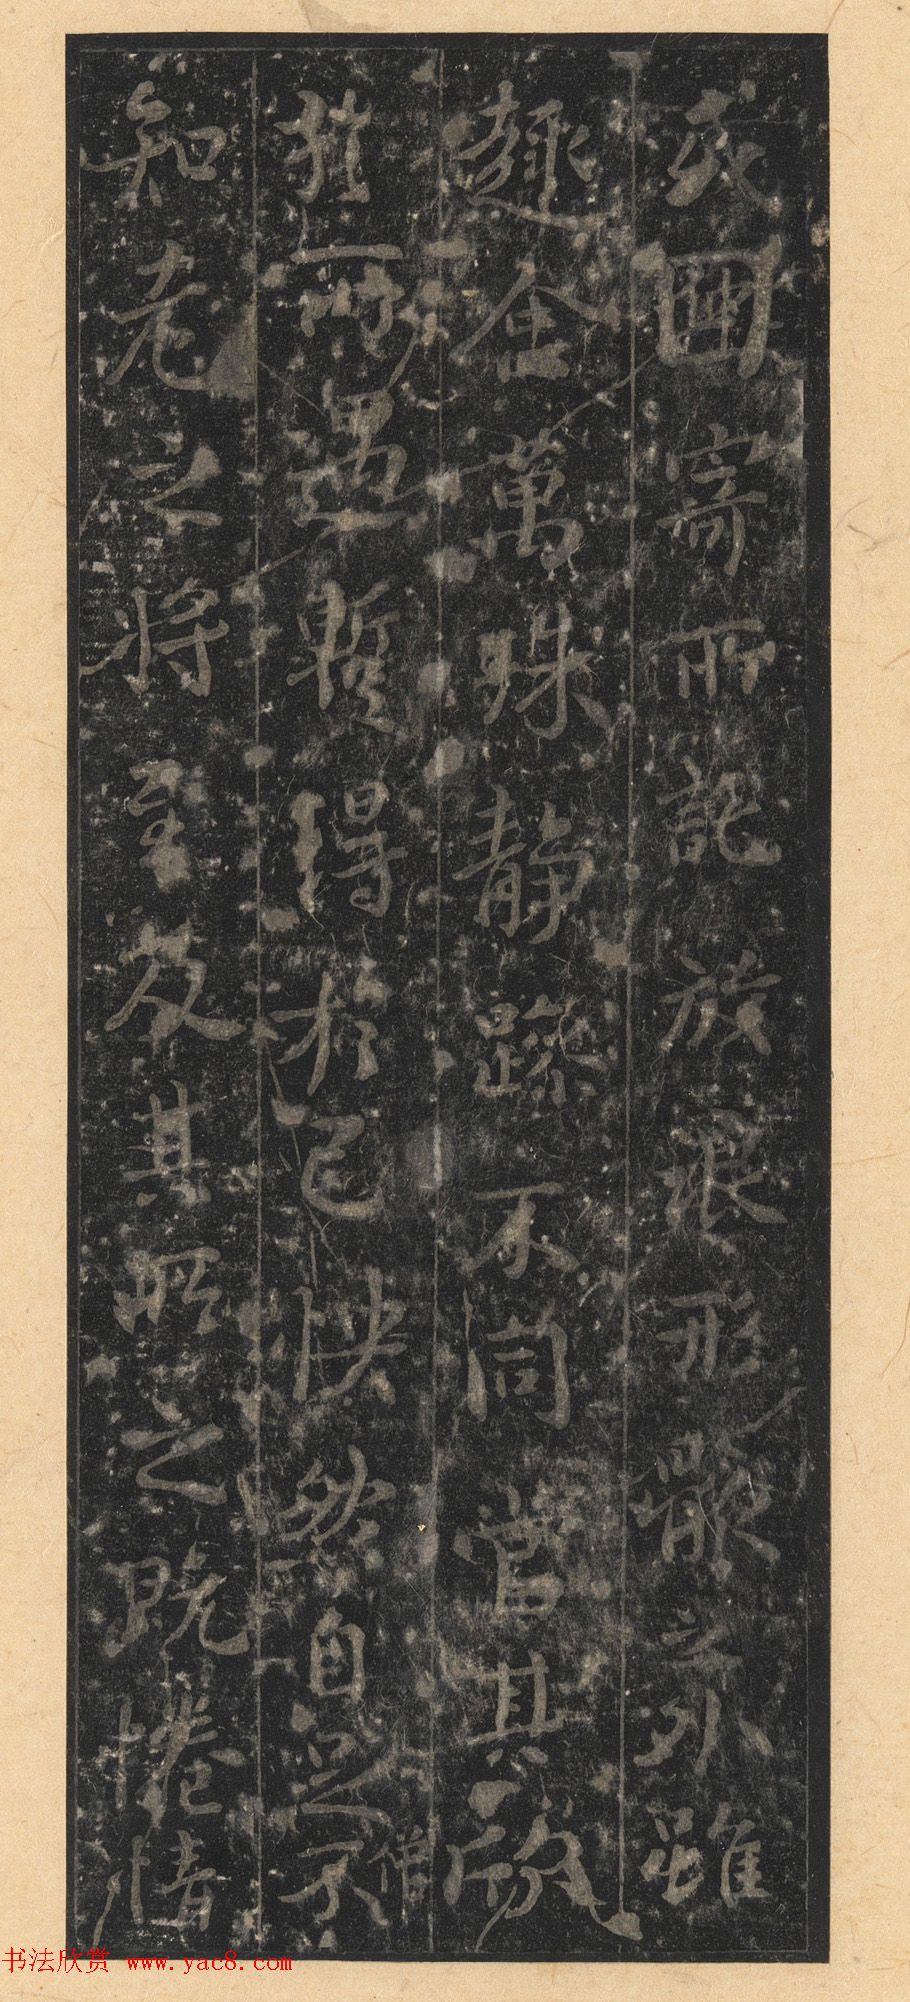 或因寄所託放浪形骸之外雖
趣舍萬殊靜躁不同當其欣
於所遇暫得於己快然自足不
僧
知老之將至及其所之既惓情
书法欣赏 www.yac8.com